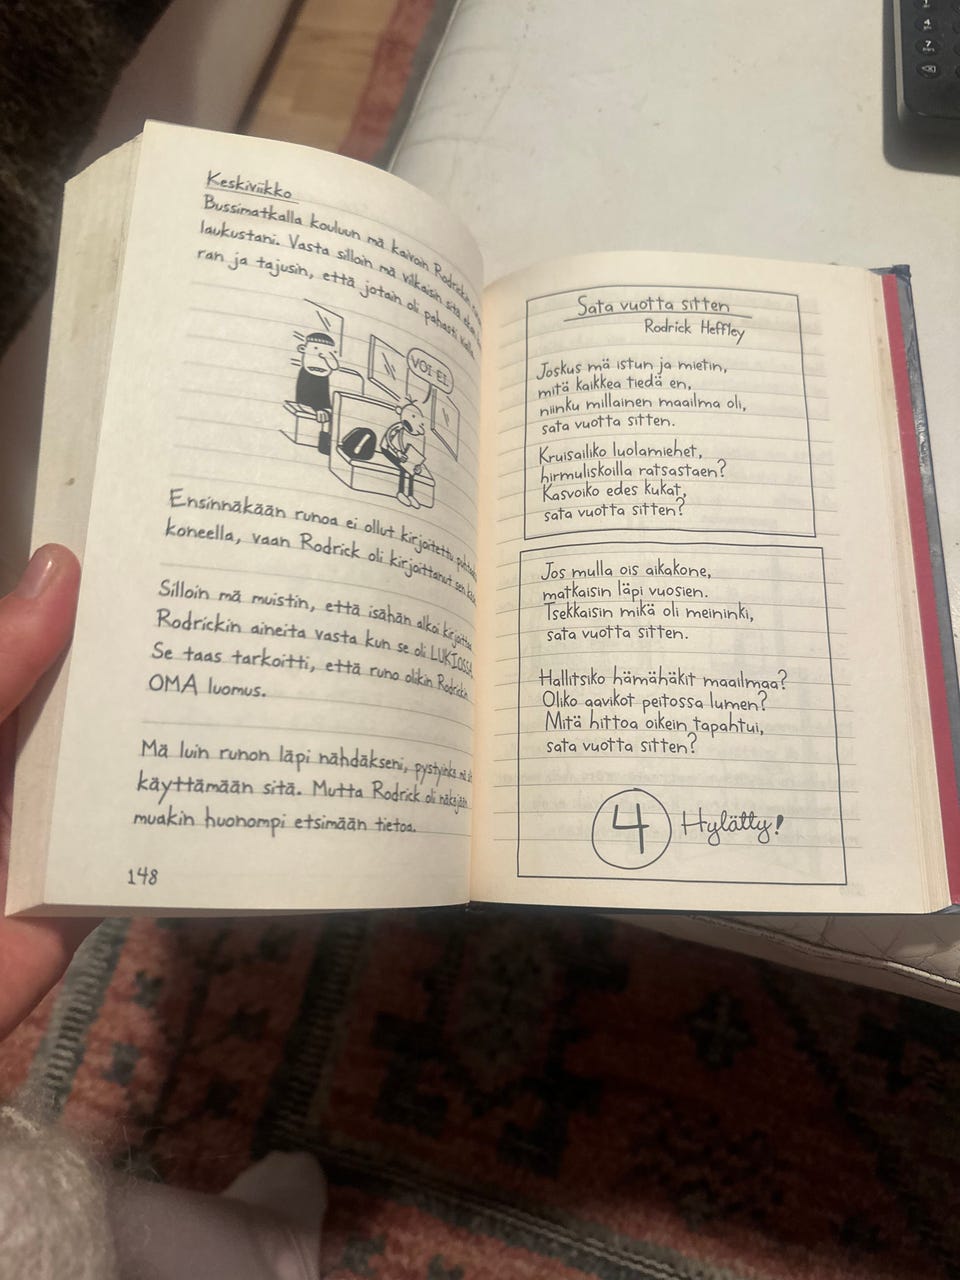 Keskiviikko
Bussimatkalla kouluun mä kaivoin Rodrickin
laukustani. Vasta silloin mä vilkaisin sitä
ran ja tajusin, että jotain oli pahasti
VOI EI.
Ensinnäkään runoa ei ollut kirjoitettu
koneella, vaan Rodrick oli kirjoittanut sen
Silloin mä muistin, että isähän alkoi
Rodrickin aineita vasta kun se oli LUKIOSSA.
Se taas tarkoitti, että runo olikin Rodrickin
OMA luomus.
Mä luin runon läpi nähdäkseni, pystyinkö mä
käyttämään sitä. Mutta Rodrick oli näköjään
muakin huonompi etsimään tietoa.
148
Sata vuotta sitten
Rodrick Heffley
Joskus mä istun ja mietin,
mitä kaikkea tiedä en,
niinku millainen maailma oli,
sata vuotta sitten.
Kruisailiko luolamiehet,
hirmuliskoilla ratsastaen?
Kasvoiko edes kukat,
sata vuotta sitten?
Jos mulla ois aikakone,
matkaisin läpi vuosien.
Tsekkaisin mikä oli meininki,
sata vuotta sitten.
Hallitsiko hämähäkit maailmaa?
Oliko aavikot peitossa lumen?
Mitä hittoa oikein tapahtui,
sata vuotta sitten?
4 Hylätty!
4
7